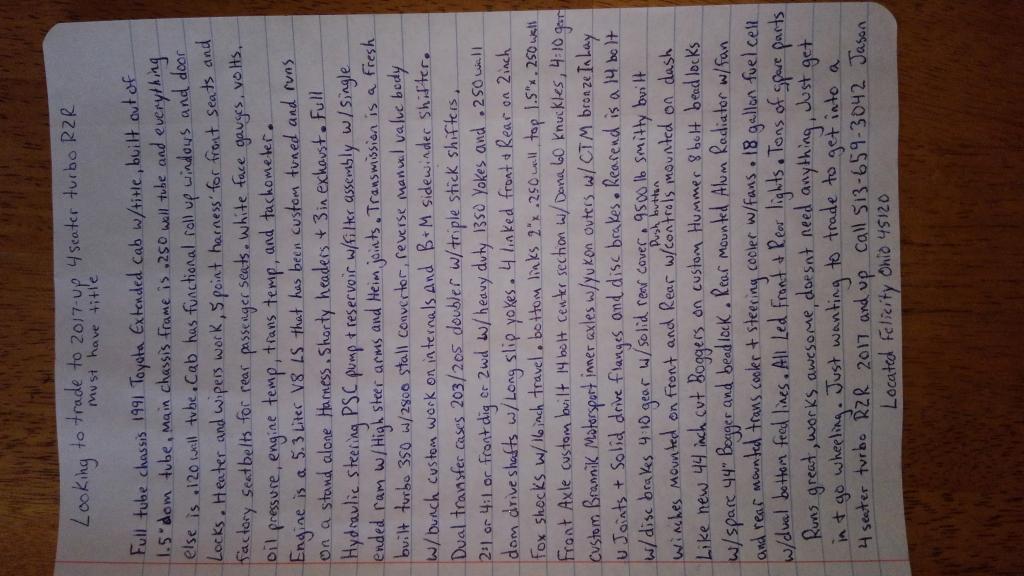 Looking to trade to 2017-up 4seater turbo RZR
must have title
Full tube chassis 1991 Toyota Extended cab w/title, built out of
1.5" dom tube. main chassis frame is .250 wall tube and everything
else is .120 wall tube. Cab has functional roll up windows and door
Locks. Heater and wipers work, 5 point harness' for front seats and
factory seatbelts for rear passenger seats. White face gauges, volts,
oil pressure, engine temp, trans temp, and tachometer.
Engine is a 5.3 Liter V8 LS that has been custom tuned and runs
on a stand alone Harness. Shorty headers + 3in exhaust. Full
Hydraulic steering PSC pump + reservoir w/filter assembly w/single
ended ram w/High steer arms and Heim joints. Transmission is a fresh
built turbo 350 w/2800 stall convertor, reverse manual valve body
w/bunch custom work on internals And B+M sidewinder shifter.
Dual transfer cases 203/205 doubler w/triple stick shifters,
2:1 or 4:1 or front dig or 2wd w/heavy duty 1350 Yokes and .250 wall
dom drive shafts w/Long slip yokes. 4 linked front + Rear on 2inch
Fox shocks w/16inch travel. bottom links 2" x .250 wall top 1.5" x .250 wall
Front Axle custom built 14 bolt center section w/Dana 60 knuckles, 4:10 gear
Custom Brannik Motorsport inner axles w/yukon outers w/CTM bronze inlay
U Joints + Solid drive flanges and disc brakes. Rearend is a 14 bolt
w/disc brakes 4:10 gear w/solid rear cover. 9500 lb smitty built
winches mounted on Front and Rear w/push button controls mounted on dash
Like new 44 inch cut Boggers on custom Hummer 8 bolt beadlocks
w/spare 44" Bogger and beadlock. Rear mounted Alum Radiator w/Fan
and rear mounted trans cooler + steering cooler w/Fans. 18 gallon fuel cell
w/dual bottom feed lines. All Led Front + Rear lights. Tons of spare parts
Runs great, works awesome, doesnt need anything, Just get
in + go wheeling. Just wanting to trade to get into a
4 seater turbo RZR 2017 and up call 513-659-3042 Jason
Located Felicity Ohio 45120